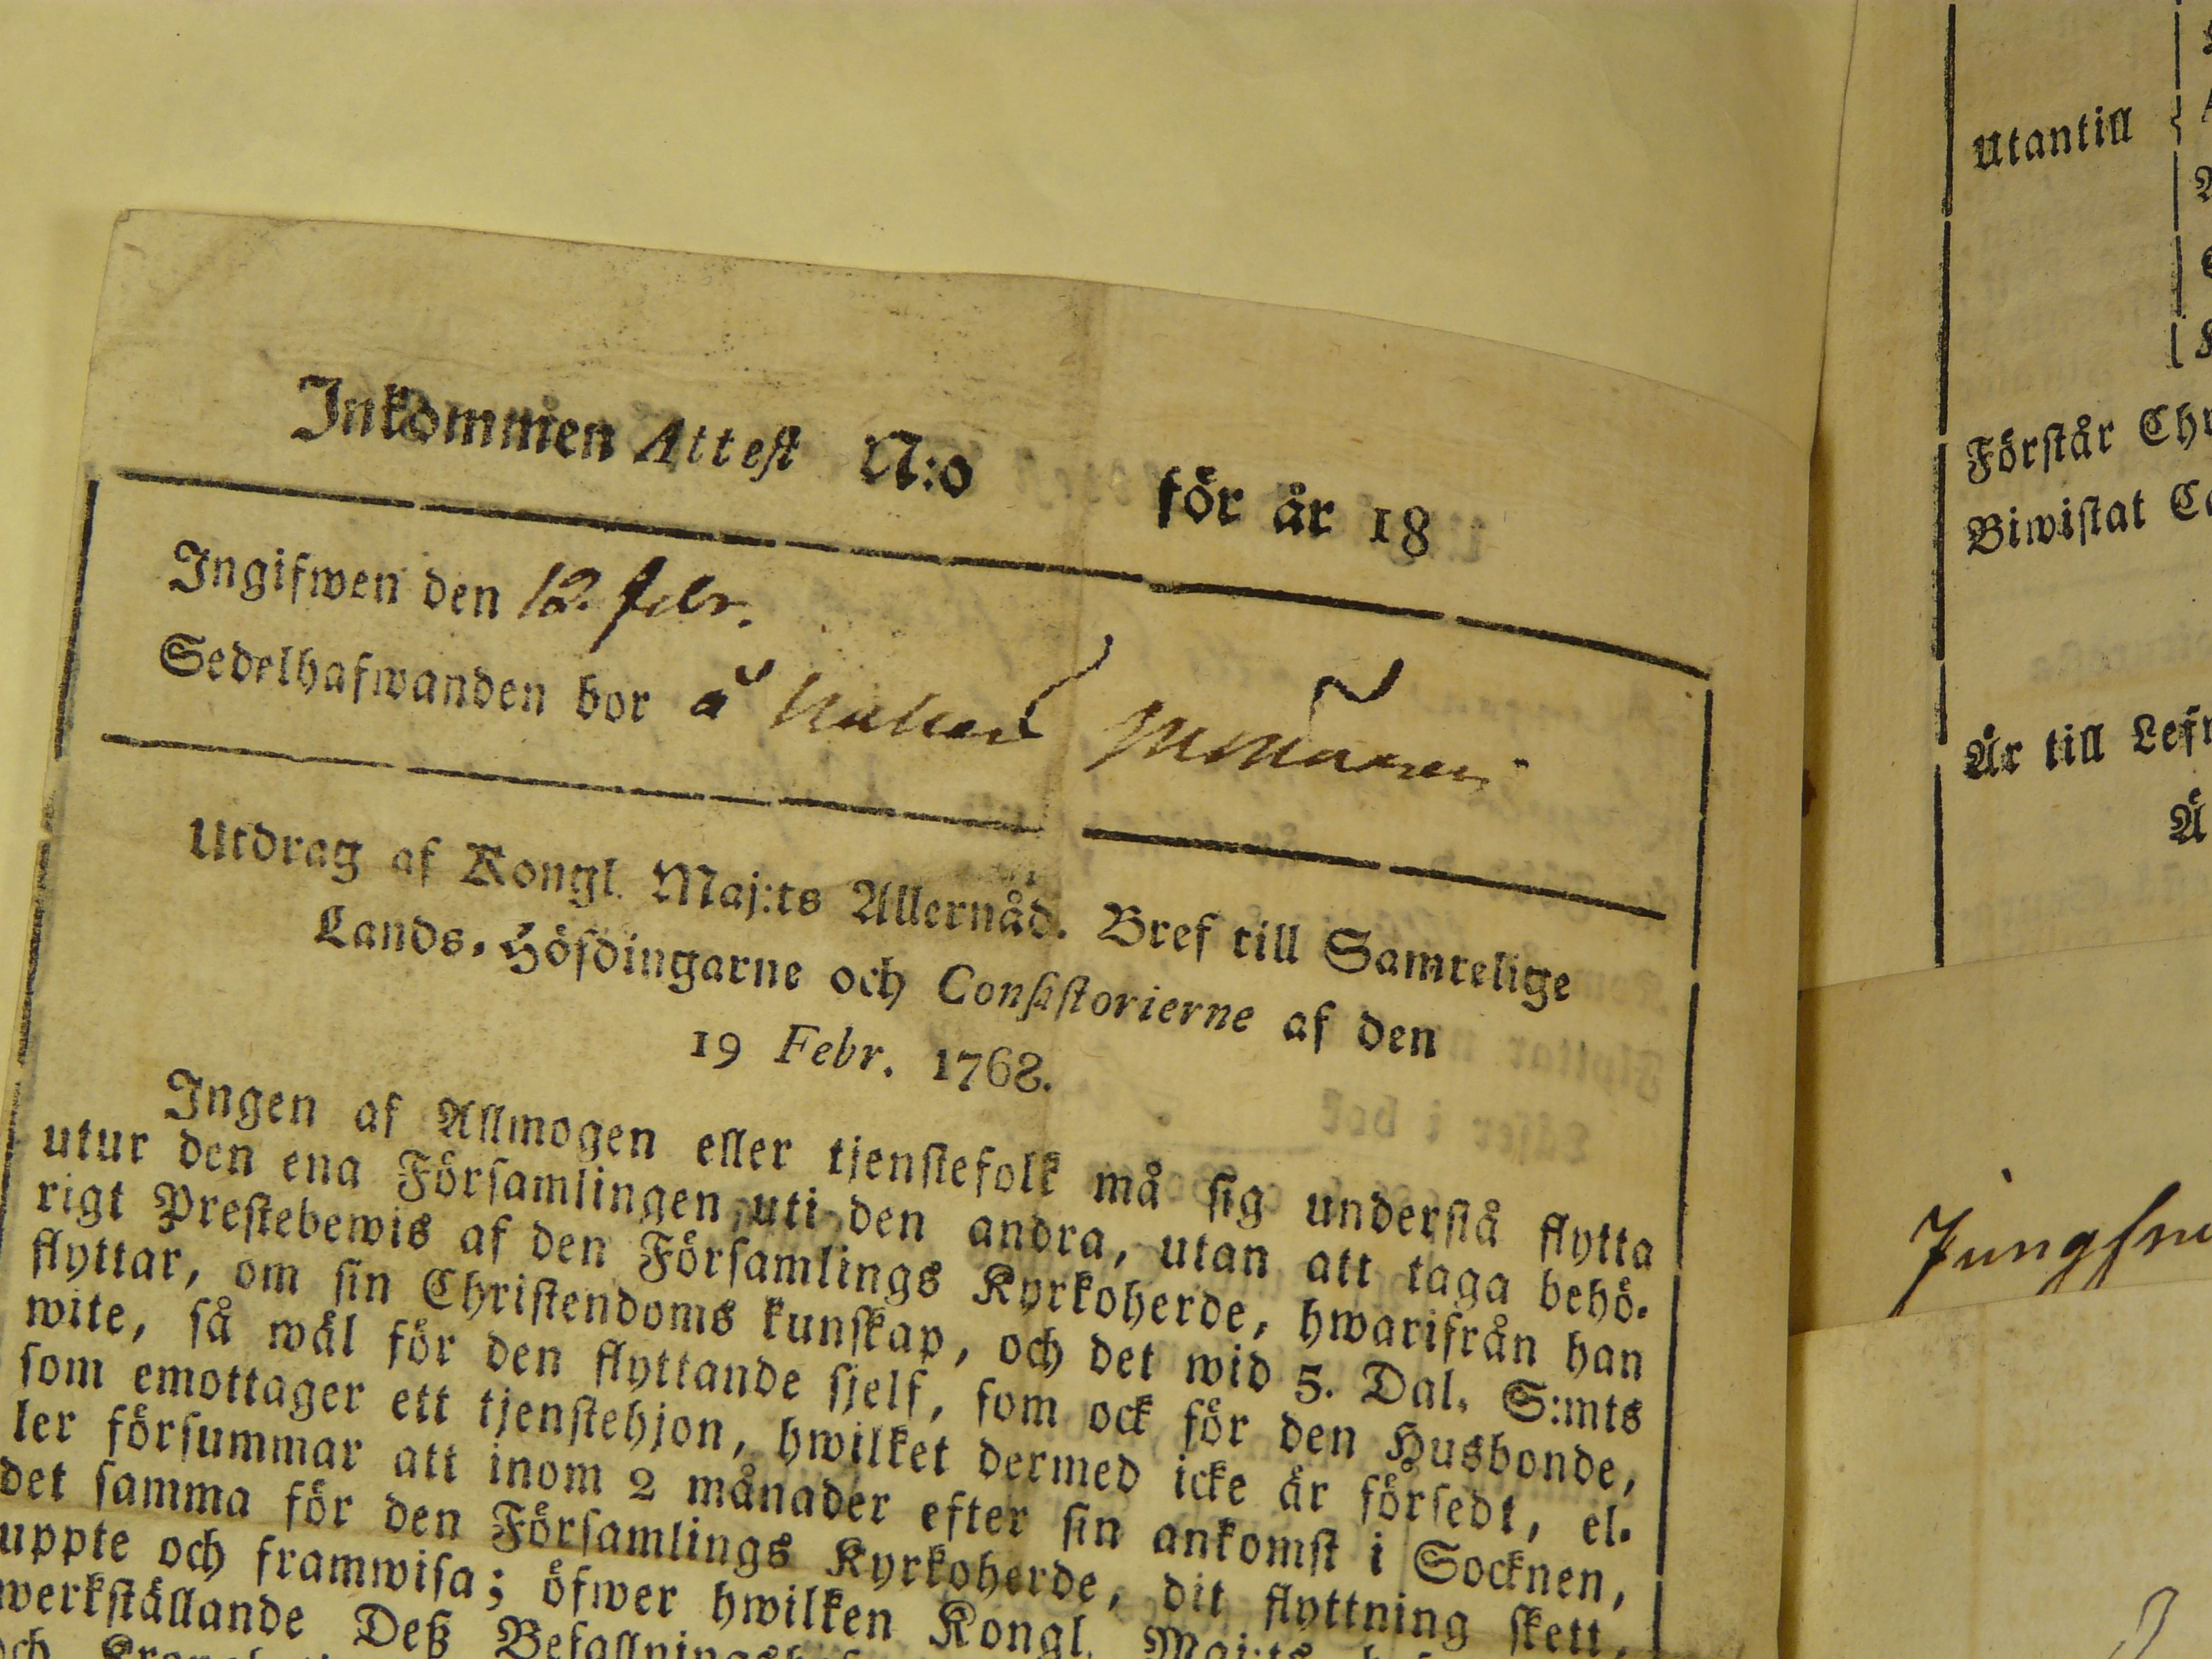 Inkommen Attest N:o för år 18
Ingifwen den 12. febr.
Sedelhafwanden bor å
Utdrag af Kongl. Maj:ts Allernåd. Bref till Samtelige
Lands-Höfdingarne och Consistorierne af den
19 Febr. 1768.
Ingen af Allmogen eller tjenstefolk må sig understå flytta
utur den ena Församlingen uti den andra, utan att taga behö-
rigt Prestebewis af den Församlings Kyrkoherde, hwarifrån han
flyttar, om sin Christendoms kunskap, och det wid 5. Dal. S:mts
wite, så wäl för den flyttande sjelf, som ock för den Husbonde,
som emottager ett tjenstehjon, hwilket dermed icke är försedt, el-
ler försummar att inom 2 månader efter sin ankomst i Socknen,
det samma för den Församlings Kyrkoherde, dit flyttning skett,
uppte och framwisa; öfwer hwilken Kongl. Maj:ts
werkställande Deß
Utantill
Förstår
Biwistat
Är till
Ä